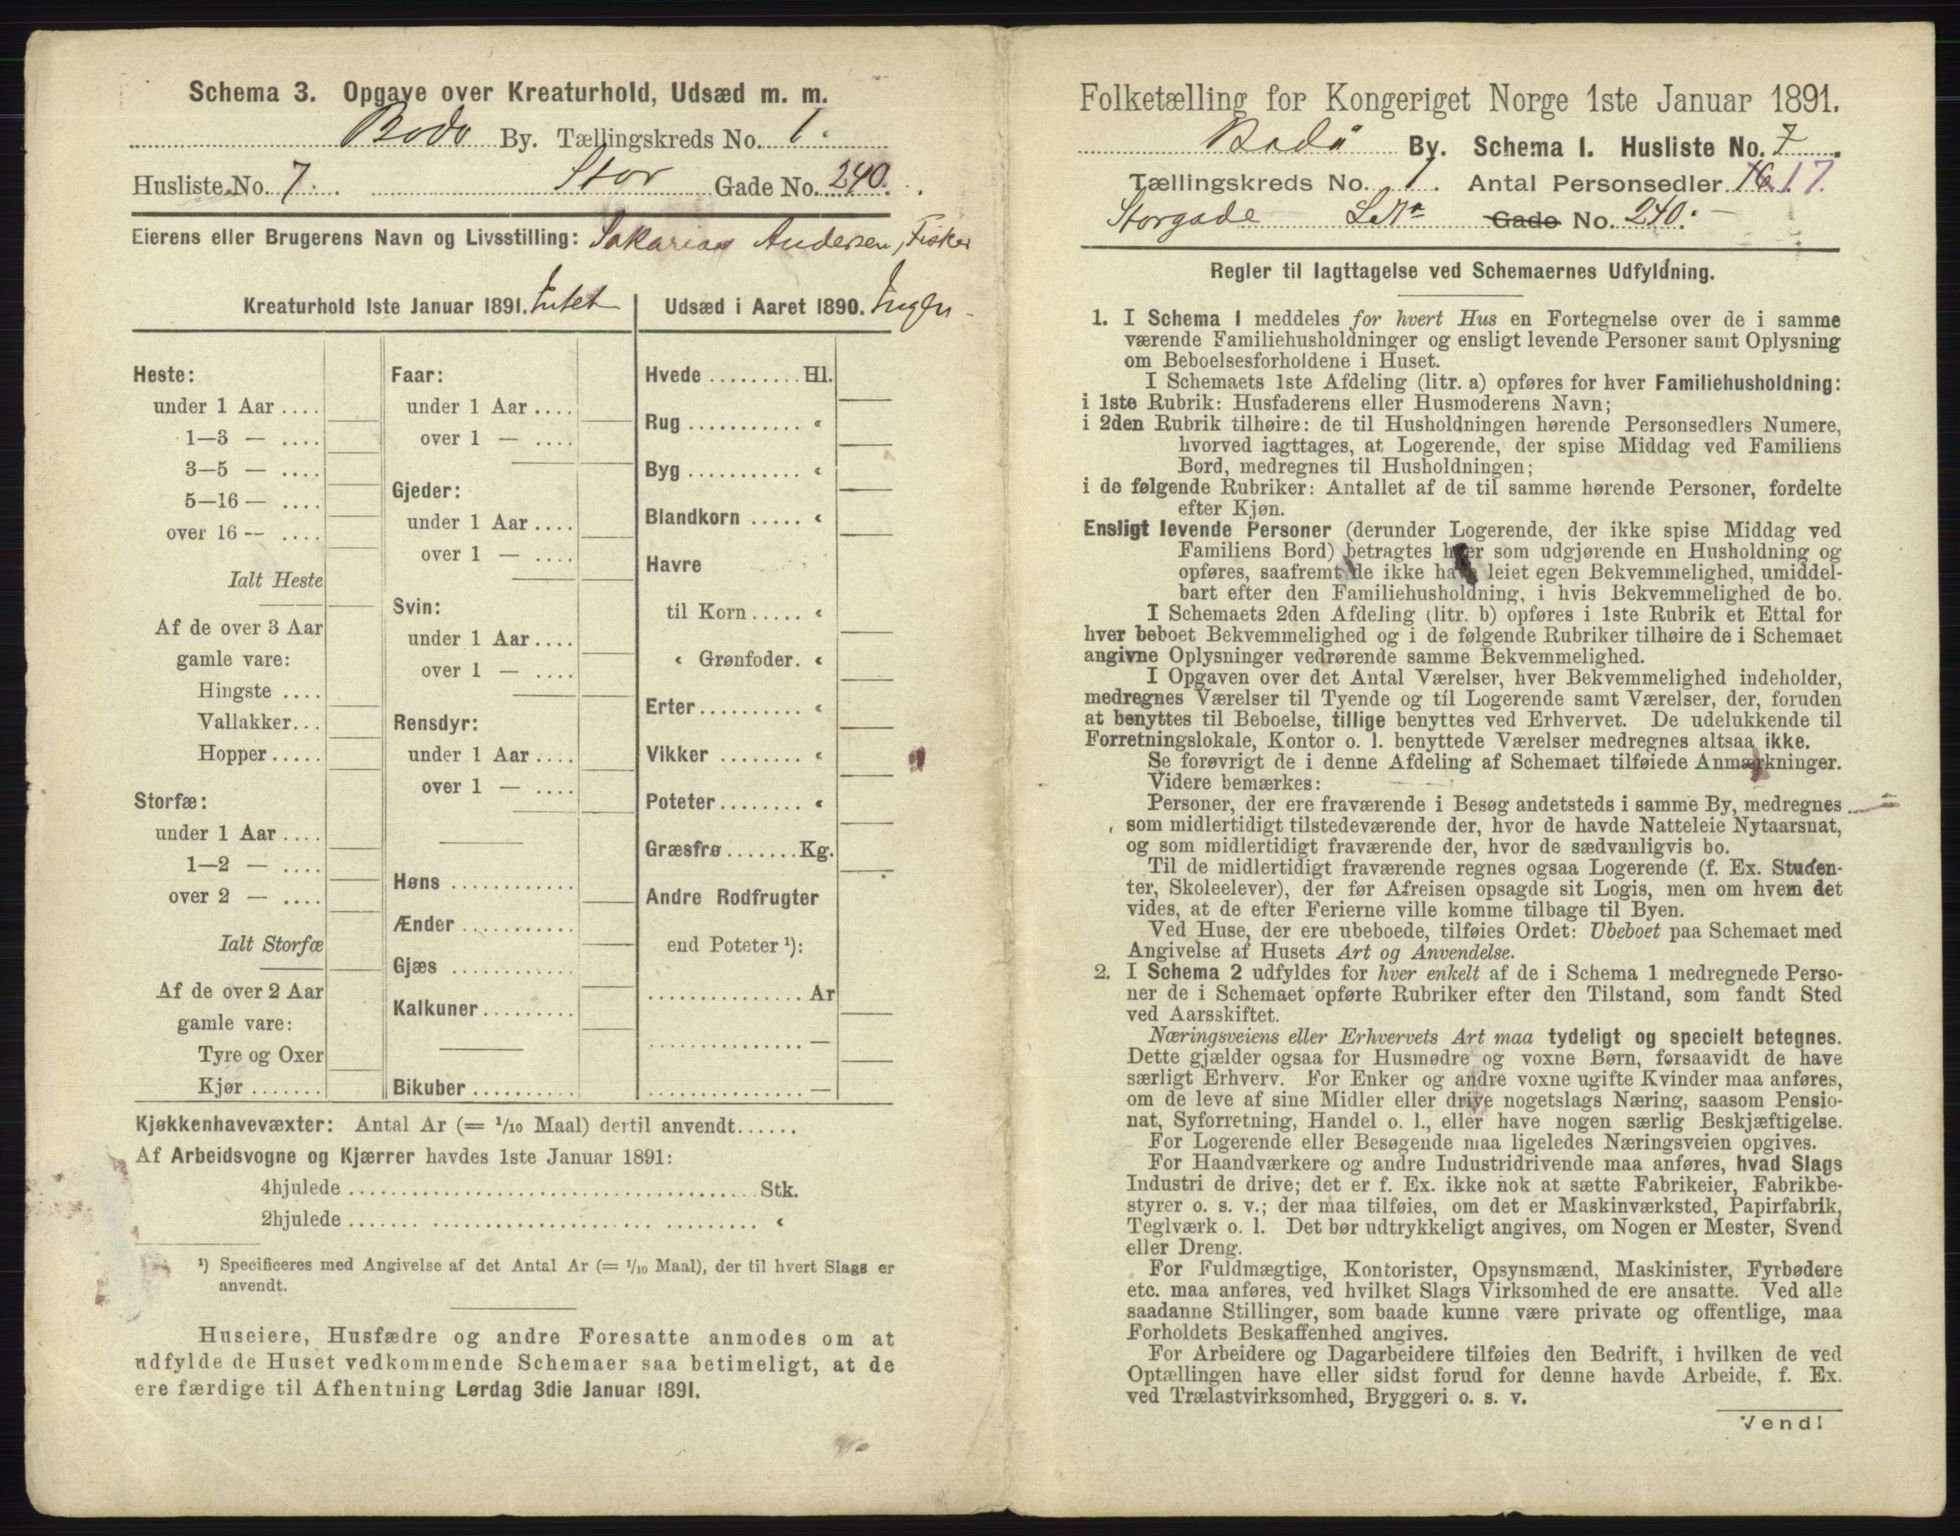 Schema 3. Opgave over Kreaturhold, Udsæd m. m.
Bodø By. Tællingskreds No. 1.
Husliste No. 7. Stor Gade No. 240.
Eierens eller Brugerens Navn og Livsstilling: Sakarias Andersen, Fisker
Kreaturhold 1ste Januar 1891. Intet
Heste:
under 1 Aar ....
1—3 — ....
3—5 — ....
5—16 — ....
over 16 — ....
Ialt Heste
Af de over 3 Aar
gamle vare:
Hingste ....
Vallakker...
Hopper.....
Storfæ:
under 1 Aar ....
1—2 — ....
over 2 — ....
Ialt Storfæ
Af de over 2 Aar
gamle vare:
Tyre og Oxer
Kjør .......
Faar:
under 1 Aar ....
over 1 — ....
Gjeder:
under 1 Aar ....
over 1 — ....
Svin:
under 1 Aar ....
over 1 — ....
Rensdyr:
under 1 Aar ....
over 1 — ....
Høns ...........
Ænder ..........
Gjæs ...........
Kalkuner.........
Bikuber ..........
Udsæd i Aaret 1890. Ingen
Hvede ......... Hl.
Rug ........... "
Byg ........... "
Blandkorn ..... "
Havre
til Korn ..... "
" Grønfoder. "
Erter.......... "
Vikker ........ "
Poteter ........ "
Græsfrø ....... Kg.
Andre Rodfrugter
end Poteter ¹):
............... Ar
............... —
............... —
Kjøkkenhavevæxter: Antal Ar (= 1/10 Maal) dertil anvendt......
Af Arbeidsvogne og Kjærrer havdes 1ste Januar 1891:
4hjulede ........................................ Stk.
2hjulede ........................................ "
¹) Specificeres med Angivelse af det Antal Ar (= 1/10 Maal), der til hvert Slags er
anvendt.
Huseiere, Husfædre og andre Foresatte anmodes om at
udfylde de Huset vedkommende Schemaer saa betimeligt, at de
ere færdige til Afhentning Lørdag 3die Januar 1891.
Folketælling for Kongeriget Norge 1ste Januar 1891.
Bodø By. Schema I. Husliste No. 7.
Tællingskreds No. 1. Antal Personsedler 16 17.
Storgade L.Nr Gade No. 240.
Regler til Iagttagelse ved Schemaernes Udfyldning.
1. I Schema 1 meddeles for hvert Hus en Fortegnelse over de i samme
værende Familiehusholdninger og ensligt levende Personer samt Oplysning
om Beboelsesforholdene i Huset.
I Schemaets 1ste Afdeling (litr. a) opføres for hver Familiehusholdning:
i 1ste Rubrik: Husfaderens eller Husmoderens Navn;
i 2den Rubrik tilhøire: de til Husholdningen hørende Personsedlers Numere,
hvorved iagttages, at Logerende, der spise Middag ved Familiens
Bord, medregnes til Husholdningen;
i de følgende Rubriker: Antallet af de til samme hørende Personer, fordelte
efter Kjøn.
Ensligt levende Personer (derunder Logerende, der ikke spise Middag ved
Familiens Bord) betragtes hver som udgjørende en Husholdning og
opføres, saafremt de ikke have leiet egen Bekvemmelighed, umiddel-
bart efter den Familiehusholdning, i hvis Bekvemmelighed de bo.
I Schemaets 2den Afdeling (litr. b) opføres i 1ste Rubrik et Ettal for
hver beboet Bekvemmelighed og i de følgende Rubriker tilhøire de i Schemaet
angivne Oplysninger vedrørende samme Bekvemmelighed.
I Opgaven over det Antal Værelser, hver Bekvemmelighed indeholder,
medregnes Værelser til Tyende og til Logerende samt Værelser, der, foruden
at benyttes til Beboelse, tillige benyttes ved Erhvervet. De udelukkende til
Forretningslokale, Kontor o. l. benyttede Værelser medregnes altsaa ikke.
Se forøvrigt de i denne Afdeling af Schemaet tilføiede Anmærkninger.
Videre bemærkes:
Personer, der ere fraværende i Besøg andetsteds i samme By, medregnes
som midlertidigt tilstedeværende der, hvor de havde Natteleie Nytaarsnat,
og som midlertidigt fraværende der, hvor de sædvanligvis bo.
Til de midlertidigt fraværende regnes ogsaa Logerende (f. Ex. Studen-
ter, Skoleelever), der før Afreisen opsagde sit Logis, men om hvem det
vides, at de efter Ferierne ville komme tilbage til Byen.
Ved Huse, der ere ubeboede, tilføies Ordet: Ubeboet paa Schemaet med
Angivelse af Husets Art og Anvendelse.
2. I Schema 2 udfyldes for hver enkelt af de i Schema 1 medregnede Perso-
ner de i Schemaet opførte Rubriker efter den Tilstand, som fandt Sted
ved Aarsskiftet.
Næringsveiens eller Erhvervets Art maa tydeligt og specielt betegnes.
Dette gjælder ogsaa for Husmødre og voxne Børn, forsaavidt de have
særligt Erhverv. For Enker og andre voxne ugifte Kvinder maa anføres,
om de leve af sine Midler eller drive nogetslags Næring, saasom Pensio-
nat, Syforretning, Handel o. l., eller have nogen særlig Beskjæftigelse.
For Logerende eller Besøgende maa ligeledes Næringsveien opgives.
For Haandværkere og andre Industridrivende maa anføres, hvad Slags
Industri de drive; det er f. Ex. ikke nok at sætte Fabrikeier, Fabrikbe-
styrer o. s. v.; der maa tilføies, om det er Maskinværksted, Papirfabrik,
Teglværk o. l. Det bør udtrykkeligt angives, om Nogen er Mester, Svend
eller Dreng.
For Fuldmægtige, Kontorister, Opsynsmænd, Maskinister, Fyrbødere
etc. maa anføres, ved hvilket Slags Virksomhed de ere ansatte. Ved alle
saadanne Stillinger, som baade kunne være private og offentlige, maa
Forholdets Beskaffenhed angives.
For Arbeidere og Dagarbeidere tilføies den Bedrift, i hvilken de ved
Optællingen have eller sidst forud for denne havde Arbeide, f. Ex.
ved Trælastvirksomhed, Bryggeri o. s. v.
Vend!